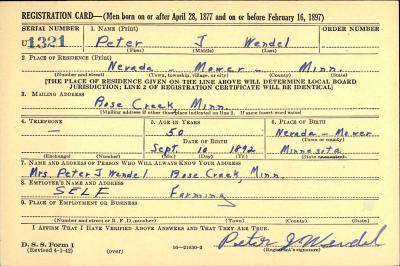 REGISTRATION CARD—(Men born on or after April 28, 1877 and on or before February 16, 1897)
SERIAL NUMBER 1. NAME (Print) ORDER NUMBER
U 1321 Peter J Wendel
(First) (Middle) (Last)
2. PLACE OF RESIDENCE (Print)
Nevada - Mower - Minn.
(Number and street) (Town, township, village, or city) (County) (State)
[THE PLACE OF RESIDENCE GIVEN ON THE LINE ABOVE WILL DETERMINE LOCAL BOARD
JURISDICTION; LINE 2 OF REGISTRATION CERTIFICATE WILL BE IDENTICAL]
3. MAILING ADDRESS
Rose Creek, Minn.
[Mailing address if other than place indicated on line 2. If same insert word same]
4. TELEPHONE 5. AGE IN YEARS 6. PLACE OF BIRTH
— 50 Nevada - Mower
DATE OF BIRTH (Town or county)
Sept. 10 1892 Minnesota
(Exchange) (Number) (Mo.) (Day) (Yr.) (State or country)
7. NAME AND ADDRESS OF PERSON WHO WILL ALWAYS KNOW YOUR ADDRESS
Mrs. Peter J Wendel Rose Creek, Minn.
8. EMPLOYER'S NAME AND ADDRESS
SELF Farming
9. PLACE OF EMPLOYMENT OR BUSINESS
(Number and street or R. F. D. number) (Town) (County) (State)
I AFFIRM THAT I HAVE VERIFIED ABOVE ANSWERS AND THAT THEY ARE TRUE.
D. S. S. Form 1
(Revised 4-1-42) (over) 16—21630-2 Peter J Wendel
(Registrant's signature)